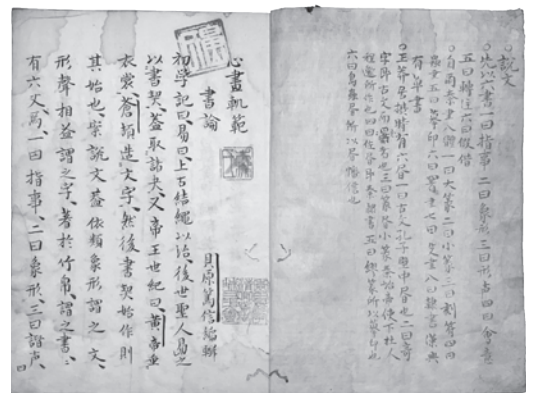 ○説文
○此以六書一曰指事 二曰象形三曰形声四曰會意
五曰轉注六曰假借
○自爾秦書八體一曰大篆二曰小篆三曰刻符四曰
蟲書五曰摹印六曰署書七曰殳書八曰隷書漢興
有草書
○王莽居摂時有六書一曰古文孔子壁中書也二曰奇
字即古文而異者也三曰篆書小篆秦始皇使下杜人
程邈所作也四曰佐書即秦隷書五曰繆篆所以摹印也
六曰鳥蟲書所以書幡信也
心畫軌範
書論
貝原篤信編輯
初學記曰、易曰、上古結繩以治、後世聖人易之
以書契、蓋取諸夬、又帝王世紀曰、黄帝垂
衣裳、蒼頡造文字、然後書契始作、則
其始也、案説文、蓋依類象形、謂之文、
形聲相益、謂之字、著於竹帛、謂之書、
有六文焉、一曰指事、二曰象形、三曰諧声、四